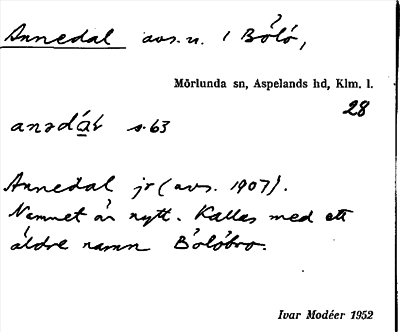 Annedal avs. u. i Bölö,
Mörlunda sn, Aspelands hd, Klm. l.
28
anədɑ́l s. 63
Annedal jr (avs. 1907).
Namnet är nytt. Kallas med ett
äldre namn Bölöbro.
Ivar Modéer 1952